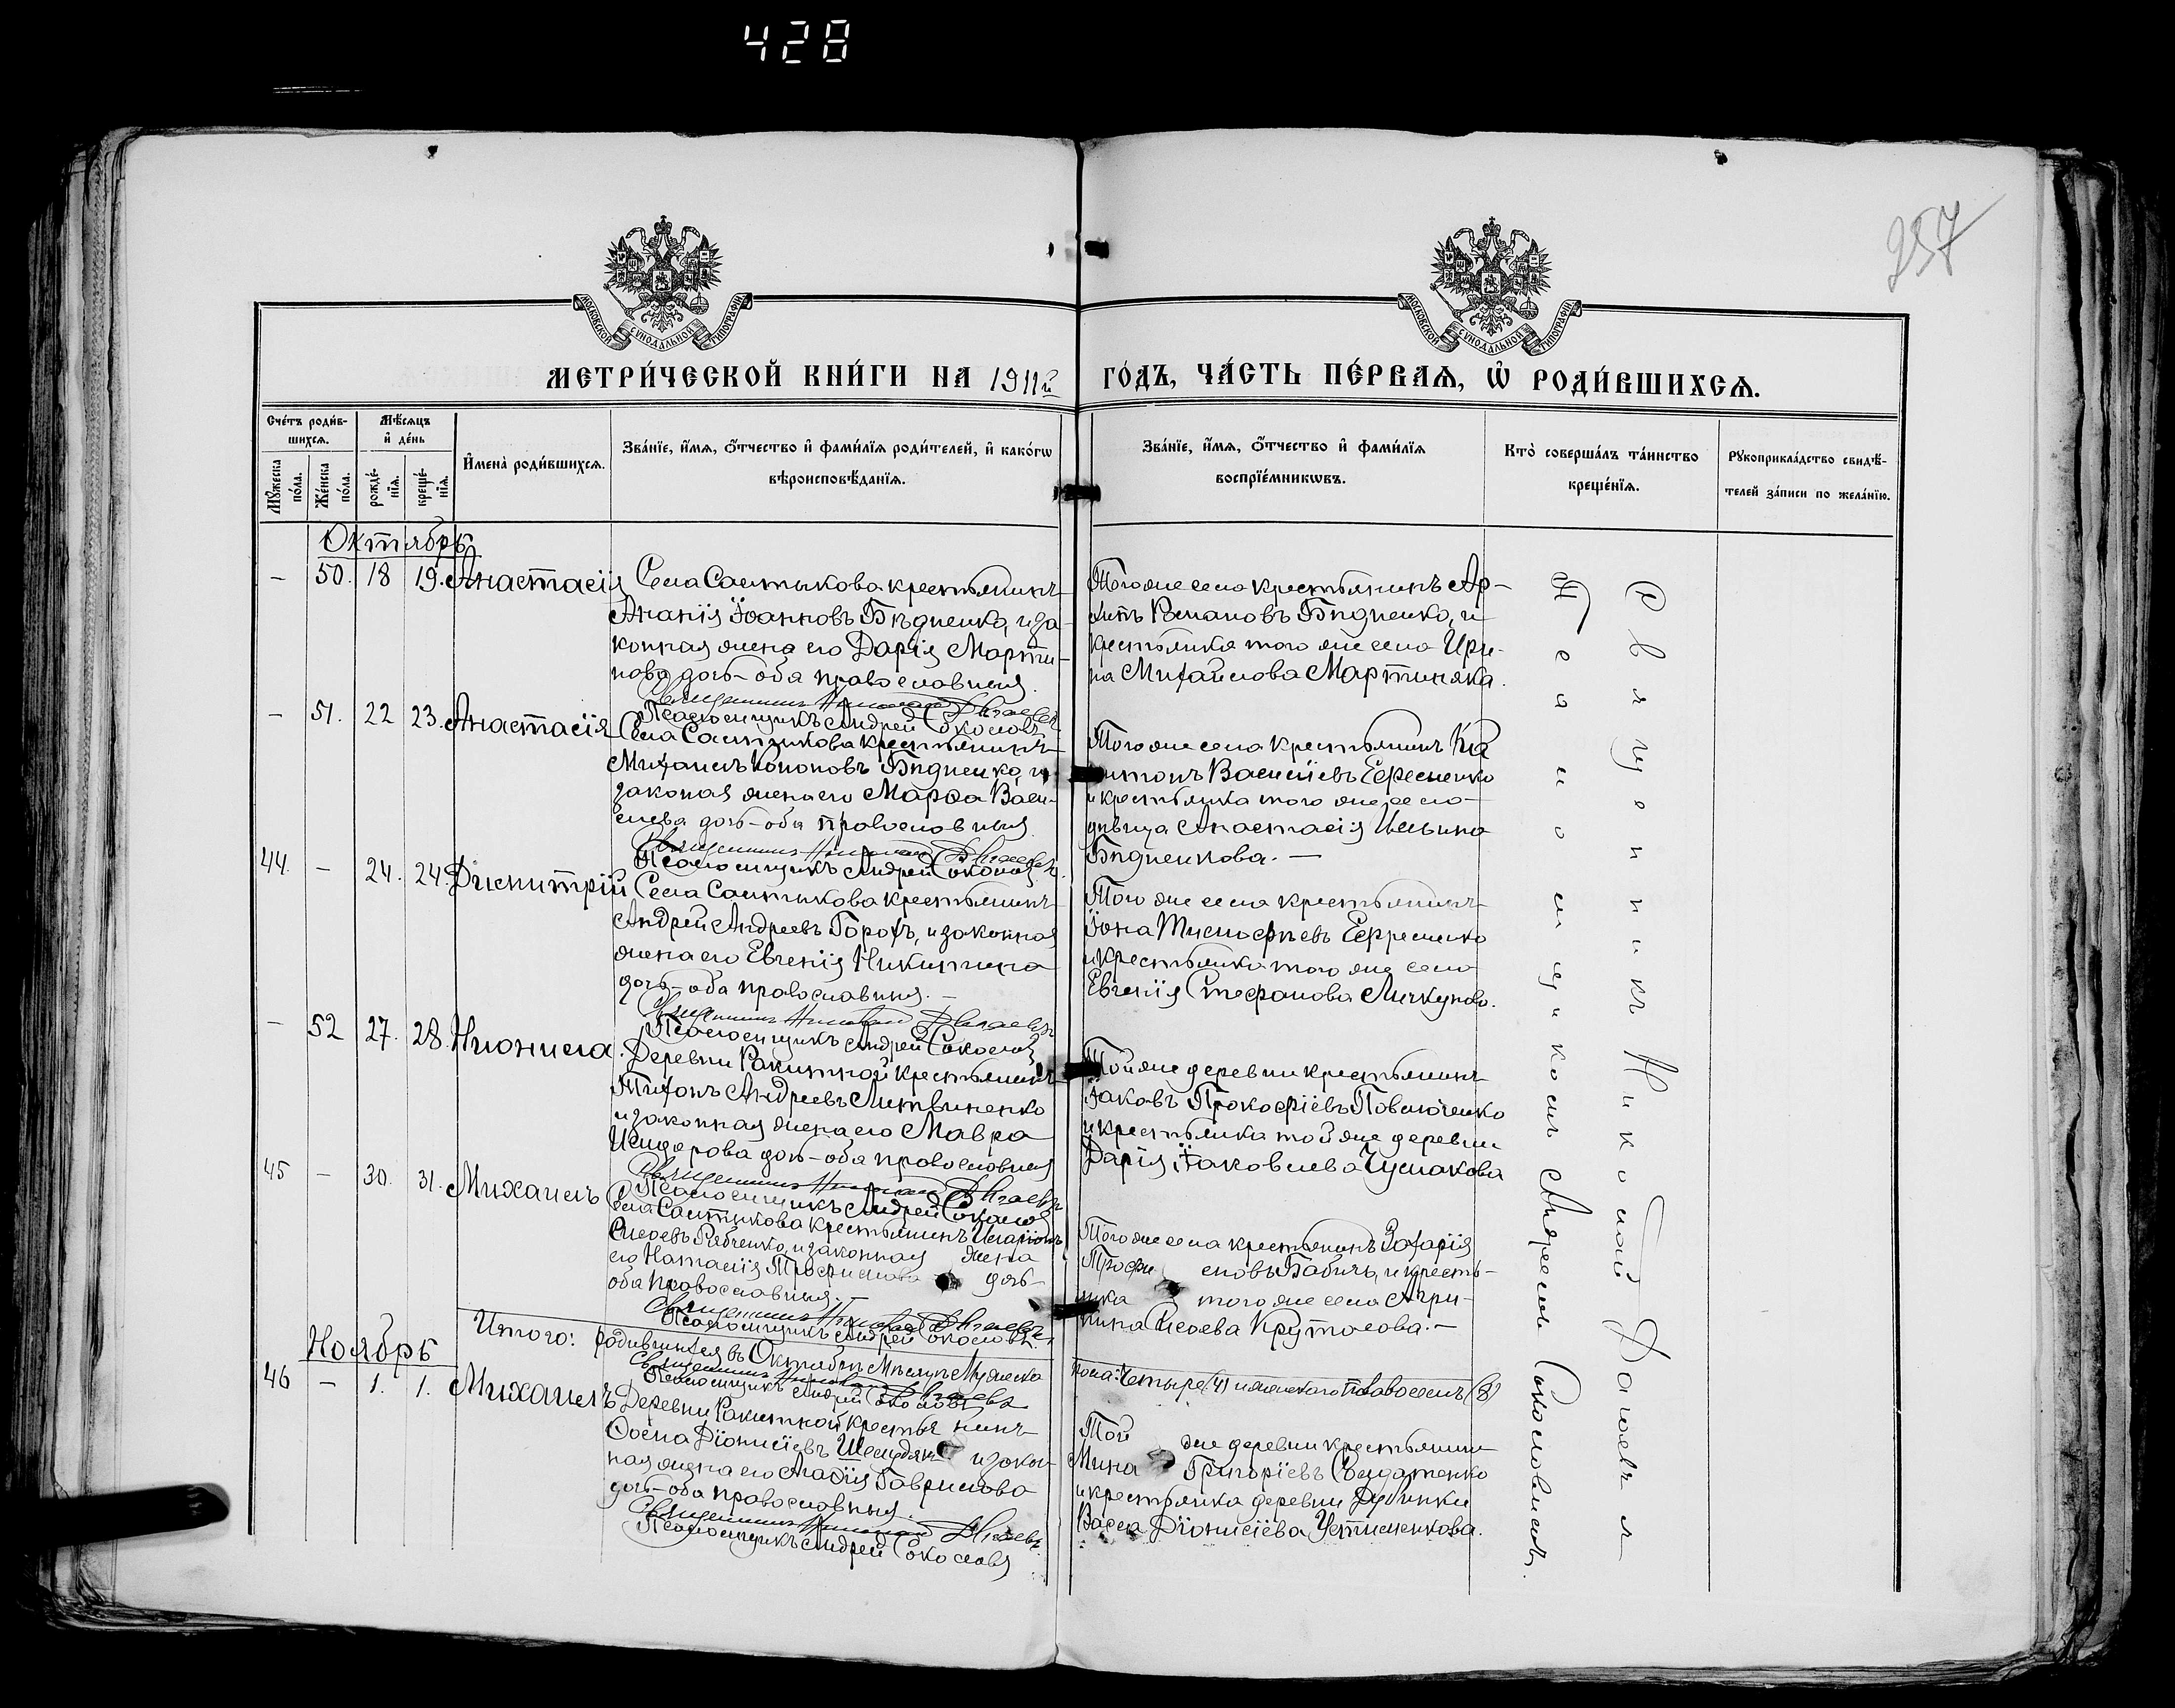 428
257
МОСКОВСКОЙ СУНОДАЛЬНОЙ ТИПОГРАФІИ
МОСКОВСКОЙ СУНОДАЛЬНОЙ ТИПОГРАФІИ
МЕТРИ́ЧЕСКОЙ КНИ́ГИ НА 1911й ГО́ДЪ, ЧА́СТЬ ПЕ́РВАѦ, Ѿ РОДИ́ВШИХСѦ.
Сче́тъ роди́в-
шихсѧ.
Мѣ́сѧцъ
и҆ де́нь
Мꙋ́жеска
по́ла.
Же́нска
по́ла.
рожде́-
нїѧ.
креще́-
нїѧ.
И҆мена̀ роди́вшихсѧ.
Зва́нїе, и҆́мѧ, ѻ҆́тчество и҆ фами́лїѧ роди́телей, и҆ како́гѡ
вѣроисповѣ́данїѧ.
Зва́нїе, и҆́мѧ, ѻ҆́тчество и҆ фами́лїѧ
воспрїе́мникѡвъ.
Кто̀ соверша́лъ та́инство
креще́нїѧ.
Рꙋкоприкла́дство свидѣ́-
телей за́писи по жела́нїю.
Октябрь
— 50. 18 19. Анастасія
Села Салтыкова крестьянинъ
Ананія Іоанновъ Бѣдненко, и за-
конная жена его Дарія Марти-
нова дочь - оба православныя.
Священникъ Николай
Псаломщикъ Андрей Соколовъ
Того же села крестьянинъ Ар-
Романовъ Бѣдненко, и
крестьянка того же села Ири-
на Михайлова Мартиняка.
— 51. 22 23. Анастасія
Села Салтыкова крестьянинъ
Михаилъ Кононовъ Бѣдненко, и
законая жена его Марѳа Васи-
лиева дочь - оба православныя
Священникъ Николай
Псаломщикъ Андрей Соколовъ
Того же села крестьянинъ
Василіевъ Ефременко
и крестьянка того же села
дѣвица Анастасія Ильина
Бѣдненкова. —
44. — 24. 24. Димитрій
Села Салтыкова крестьянинъ
Андрей Андреевъ Горохъ, и законная
жена его Евгенія Никитина
дочь - оба православныя. —
Священникъ Николай
Псаломщикъ Андрей Соколовъ
Того же села крестьянинъ
Іона Тимофѣевъ Ефременко
и крестьянка того же села
Евгенія Стефанова
— 52 27. 28. Неонила.
Деревни Ракитной крестьянинъ
Тихонъ Андреевъ Литвиненко
и законная жена его Мавра
Исидорова дочь - оба православныя
Священникъ Николай
Псаломщикъ Андрей Соколовъ
Той же деревни крестьянинъ
Іаковъ Прокофіевъ Павлюченко
и крестьянка той же деревни
Дарія Іаковлева Чумакова
45 — 30. 31. Михаилъ
Села Салтыкова крестьянинъ Иларіонъ
Рябченко, и законная жена
его Наталія Трофимова дочь -
оба православныя. —
Священникъ Николай
Псаломщикъ Андрей Соколовъ
Того же села крестьянинъ Захарія
Трофимовъ Бабичъ, и кресть-
янка того же села Агри-
пина
Итого: родившихся въ Октябрѣ мѣсяцѣ Мужеска
пола: четыре (4) и женскаго пола восемь (8)
Священникъ Николай
Псаломщикъ Андрей Соколовъ
Ноябрь
46 — 1. 1. Михаилъ
Деревни Ракитной крестьянинъ
Діонисіевъ и закон-
ная жена его Агаѳія Гаврилова
дочь - оба православныя.
Священникъ Николай
Псаломщикъ Андрей Соколовъ
Той же деревни крестьянинъ
Мина Григоріевъ Солдатенко
и крестьянка деревни Дубинки
Васса Діонисіева Устименкова.
Священникъ Николай
съ Псаломщикомъ Андреемъ Соколовымъ.